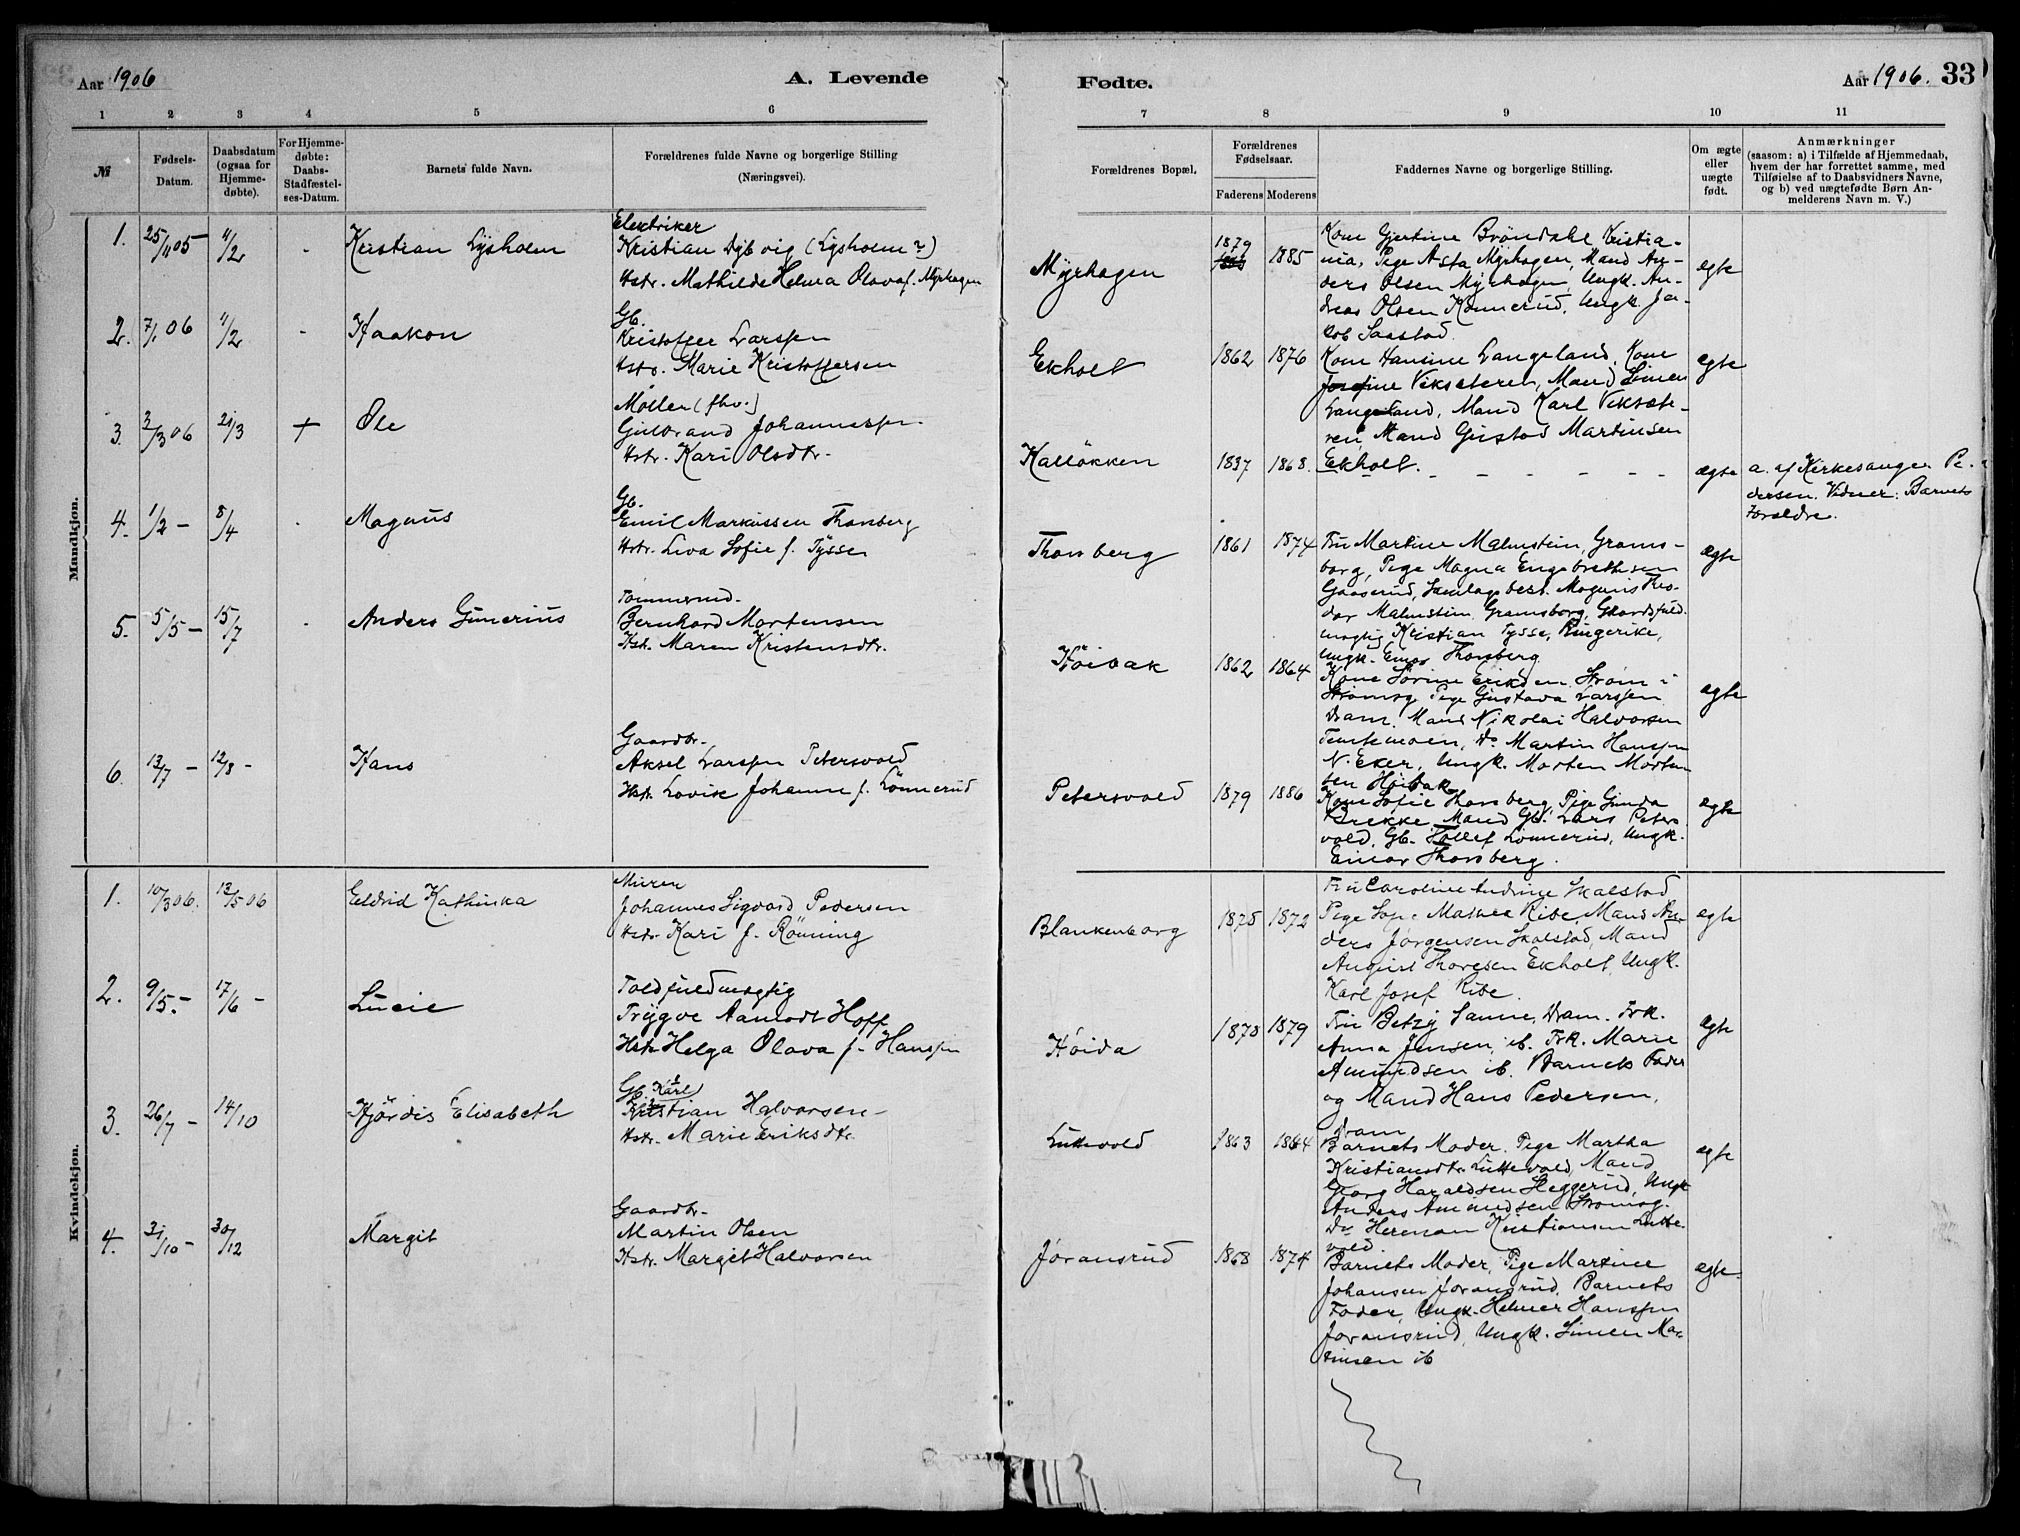 Aar 1906
A. Levende
Fødte.
Aar 1906. 33
1 2 3 4 5 6
7 8 9 10 11
№
Fødsels-
Datum.
Daabsdatum
(ogsaa for
Hjemme-
døbte).
For Hjemme-
døbte:
Daabs-
Stadfæstel-
ses-Datum.
Barnets fulde Navn.
Forældrenes fulde Navne og borgerlige Stilling
(Næringsvei).
Forældrenes Bopæl.
Forældrenes
Fødselsaar.
Faderens Moderens
Faddernes Navne og borgerlige Stilling.
Om ægte
eller
uægte
født.
Anmærkninger
(saasom: a) i Tilfælde af Hjemmedaab,
hvem der har forrettet samme, med
Tilføielse af to Daabsvidners Navne,
og b) ved uægtefødte Børn An-
melderens Navn m. V.)
Mandkjøn.
1. 25/11 05 4/2 - Kristian Lysholm
Elektriker
Kristian Dybvig (Lysholm?)
Hstr. Mathilde Helma Olava f. Myrhagen
Myrhagen
1879
1885
Kone Gjertine Bröndahl Kristia-
nia, Pige Asta Myrhagen, Mand An-
ders Olsen Myrhagen, Ungk. An-
dreas Olsen Konnerud, Ungk. Ja-
kob Saastad.
egte
2. 7/1 06 4/2 - Haakon
Gb.
Kristoffer Larssen
Hstr. Marie Kristoffersen
Ekholt
1862 1876
Kone Hansine Langeland, Kone
Josefine Vekseteren, Mand Simen
Langeland, Mand Karl Veksæte-
ren, Mand Gustad Martinsen
Ekholt.
egte
3. 2/3 06 21/3 + Ole
Møller (fhv.)
Gulbrand Johannessen
Hstr. Kari Olsdtr.
Kalløkken
1837 1868.
- - - - - -
ægte
a. af Kirkesanger Pe-
dersen. Vidner: Barnets
Forældre.
4. 1/2 - 8/4 - Magnus
Gb.
Emil Markussen Thorsberg
Hstr. Lina Sofie f. Tyssen
Thorsberg
1861 1874
Fru Martine Malmstein, Grams-
borg, Pige Magna Engebrethsen
Gaaserud, Samlagsbest. Magnus Theo-
dor Malmstein Gramsborg,
Kristian Tysse, Ringerike,
Ungk. Einar Thorsberg.
Ægte
5. 5/5 - 15/7 - Anders Gunerius
Tømmermd.
Bernhard Mortensen
Hstr. Maren Kristensdtr.
Høibak
1862 1864
Kone Sørine Eriksen Strøm i
Strømsg. Pige Gustava Larssen
Dram. Mand Nikolai Halvorsen
Tentemoen, Do Martin Hanssen
N. Eker, Ungk. Morten Morten-
sen Høibak
egte
6. 13/7 - 12/8 - Hans
Gaardbr.
Aksel Larssen Petersvold
Hstr. Lovise Johanne f. Lønnerud
Petersvold
1879 1886
Kone Sofie Thorsberg, Pige Gunda
Brekke, Mand Gb. Lars Peters-
vold, Gb. Tollef Lønnerud, Ungk.
Einar Thorsberg.
ægte
Kvindekjøn.
1. 10/3 06. 13/5 06 Eldrid Kathinka
Murer
Johannes Sigvard Pedersen
Hstr. Kari f. Rønning
Blankenborg
1875 1872
Fru Caroline Andrine Skalstad
Pige Sofie Mathea Ribe, Mand An-
ders Jørgensen Skalstad, Mand
August Thoresen Ekholt, Ungk.
Karl Josef Ribe.
egte
2. 9/5 - 17/6 - Lucie
Toldfuldmægtig
Trygve Aamodt Hoff
Hstr. Helga Olava f. Hanssen
Høida
1878 1879
Fru Betzy Sanne, Dram. Frk.
Anna Jensen, ib. Frk. Marie
Amundsen ib. Barnets Fader
og Mand Hans Pedersen,
Dram
ægte
3. 26/7 - 14/10 Hjördis Elisabeth
Gb. Karl
Kristian Halvorsen
Hstr. Marie Eriksdtr.
Luttevold
1863 1864
Barnets Moder, Pige Martha
Kristiansdtr. Luttevold, Mand
Georg Haraldsen Steggerud, Ungk.
Anders Amundsen Strømsg.
Do Herman Kristiansen Lutte-
vold
egte
4. 31/10 - 30/12 Margit
Gaardbr.
Martin Olsen
Hstr. Margit Halvorsen
Joransrud
1868 1874
Barnets Moder, Pige Martine
Johansen Joransrud, Barnets
Fader, Ungk. Helmer Hanssen
Joransrud, Ungk. Simen Mar-
tinsen ib
ægte.